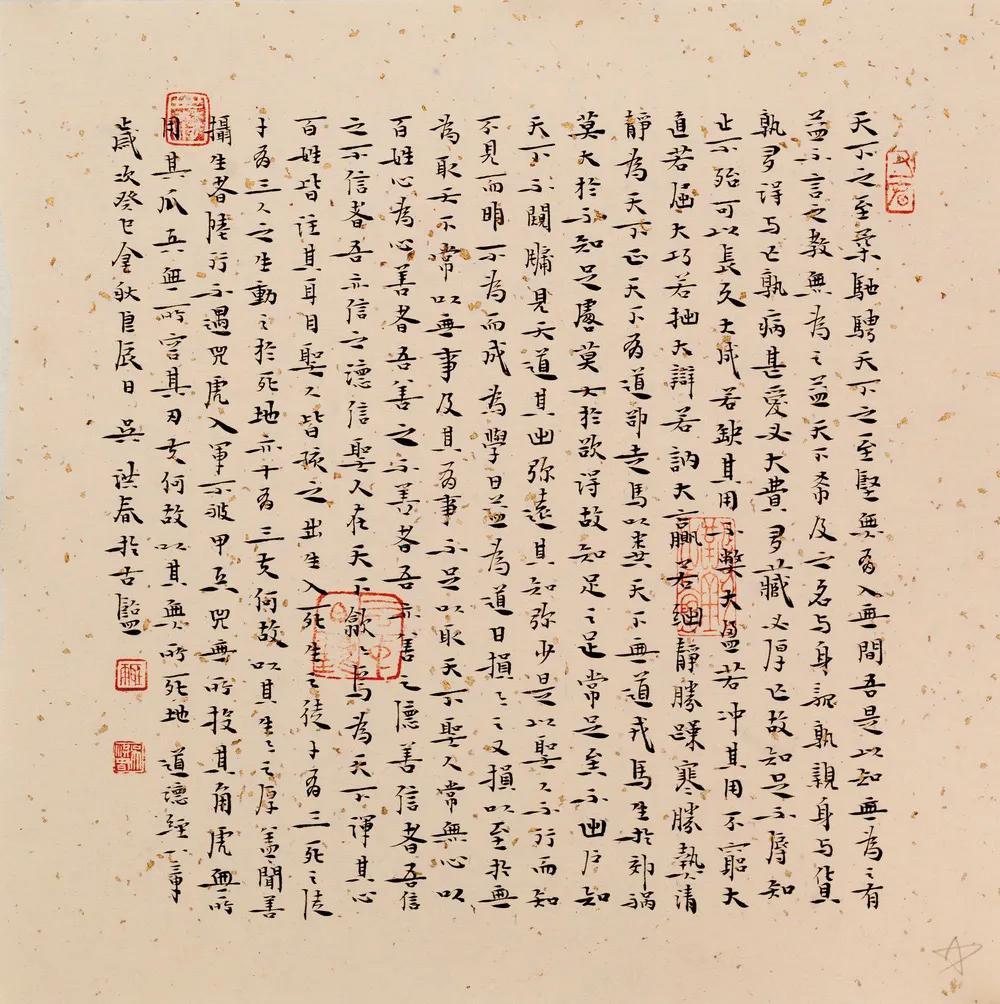 天下之至柔馳騁天下之至堅無有入無間吾是以知無為之有
益不言之教無為之益天下希及之名与身孰親身与貨
孰多得与亡孰病甚愛必大費多藏必厚亡故知足不辱知
止不殆可以長久大成若缺其用不弊大盈若冲其用不窮大
直若屈大巧若拙大辯若訥大贏若絀靜勝躁寒勝熱清
靜為天下正天下有道卻走馬以糞天下無道戎馬生於郊禍
莫大於不知足咎莫大於欲得故知足之足常足矣不出戶知
天下不闚牖見天道其出弥遠其知弥少是以聖人不行而知
不見而明不為而成為學日益為道日損〻之又損以至於無
為取天下常以無事及其有事不足以取天下聖人常無心以
百姓心為心善者吾善之不善者吾亦善之德善信者吾信
之不信者吾亦信之德信聖人在天下歙〻焉為天下渾其心
百姓皆注其耳目聖人皆孩之出生入死生之徒十有三死之徒
十有三人之生動之於死地亦十有三夫何故以其生〻之厚蓋聞善
攝生者陸行不遇兕虎入軍不被甲兵兕無所投其角虎無所
用其爪兵無所容其刃夫何故以其無所死地 道德經八章
歲次癸巳金秋良辰日 吳洪春於古監